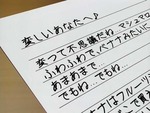 変しいあなたへ♪
変って不思議だね マシュマロ
ふわふわで バナナみたいに
あまあまで…
でもね でもね…
ナはフルーツ